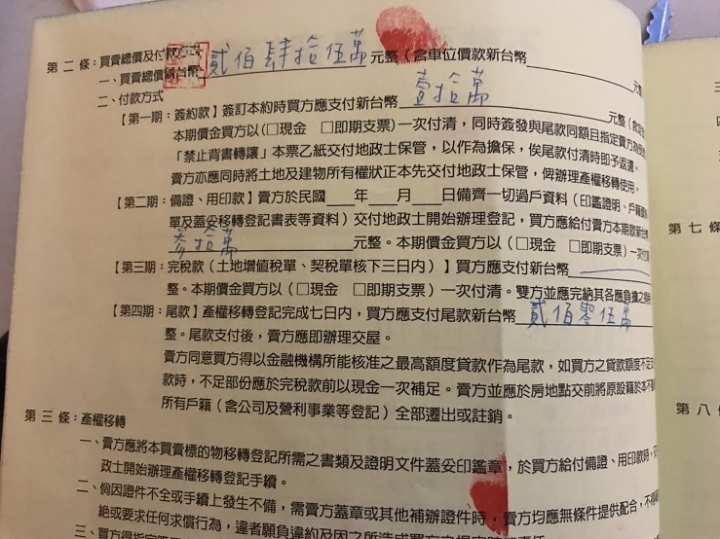 第二條：買賣總價及付款方式
一、買賣總價新台幣貳佰肆拾伍萬元整（含車位價款新台幣元整
二、付款方式
【第一期：簽約款】簽訂本約時買方應支付新台幣壹拾萬元整（含定
本期價金買方以（□現金 □即期支票）一次付清，同時簽發與尾款同額且指定賣方為受
「禁止背書轉讓」本票乙紙交付地政士保管，以作為擔保，俟尾款付清時即予返還。
賣方亦應同時將土地及建物所有權狀正本先交付地政士保管，俾辦理產權移轉使用。
【第二期：備證、用印款】賣方於民國___年___月___日備齊一切過戶資料（印鑑證明、戶籍
單及蓋妥移轉登記書表等資料）交付地政士開始辦理登記，買方應給付賣方本期款新台
參拾萬元整。本期價金買方以（□現金 □即期支票）一次付
【第三期：完稅款（土地增值稅單、契稅單核下三日內）】買方應支付新台幣
整。本期價金買方以（□現金 □即期支票）一次付清。雙方並應完納其各應負擔之
【第四期：尾款】產權移轉登記完成七日內，買方應支付尾款新台幣貳佰零伍萬
整。尾款支付後，賣方應即辦理交屋。
賣方同意買方得以金融機構所能核准之最高額度貸款作為尾款，如買方之貸款額度不足
款時，不足部份應於完稅款前以現金一次補足。賣方並應於房地點交前將原設籍於本不
所有戶籍（含公司及營利事業等登記）全部遷出或註銷。
第三條：產權移轉
一、賣方應將本買賣標的物移轉登記所需之書類及證明文件蓋妥印鑑章，於買方給付備證、用印款時，
政士開始辦理產權移轉登記手續。
二、倘因證件不全或手續上發生不備，需賣方蓋章或其他補辦證件時，賣方均應無條件提供配合，不得
絕或要求任何求償行為，違者願負違約及因之所造成買方之損害賠償責任。
三、買方得指定
第七條
第八